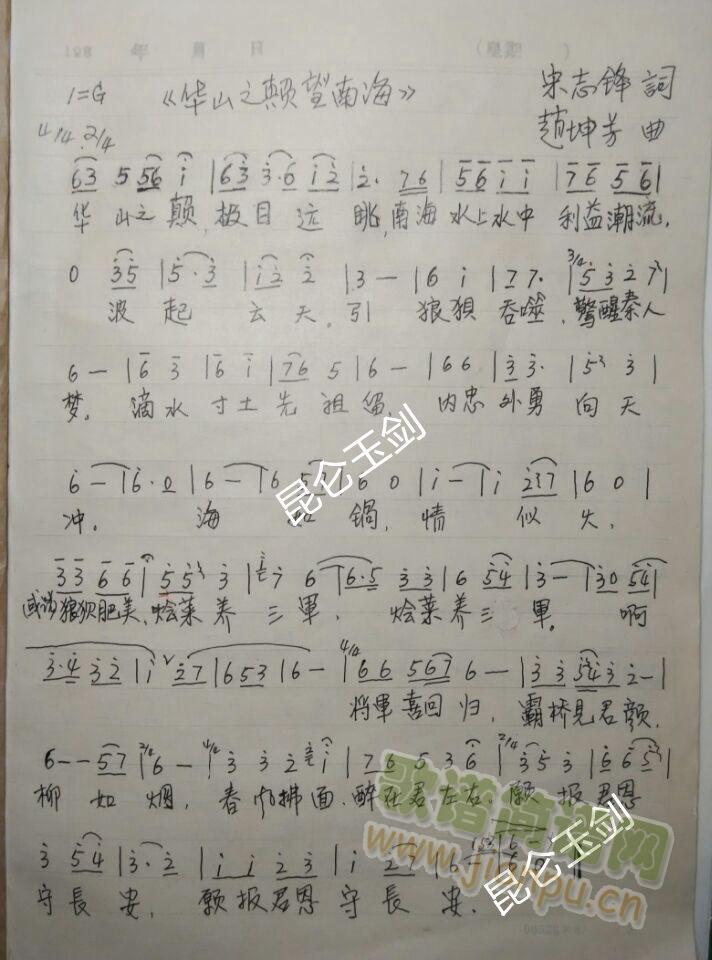 198 年 月 日 (星期 )
1=G 《华山之颠望南海》 宋志锋 詞
4/4 2/4 趙坤芳 曲
63 5 56 i | 63 3·6 i2 | 2· 76 | 56 i i | 76 56 |
华 山之 颠,极目 远 眺,南海 水上水中 利益潮流,
0 35 | 5·3 | i2 2 | 3 — | 6 i | 77· | 3/4 5 3 2 7 |
波 起 云 天。引 狼狈 吞噬,驚醒秦人
6 — | 6 3 | 6 i | 76 5 | 6 — | 66 | 33· | 5 3 |
梦。滴水 寸土 先 祖 留,内忠外勇 向 天
6 — | 6·0 | 6 — | 6 | 6 0 | i — | i 27 | 6 0 |
冲。海 如 锅,情 似 火,
33 66 | 55 3 | 7 6 | 6·5 33 | 6 54 | 3 — | 30 54 |
狼狈肥美,烩菜 养 三 軍,烩菜养三 軍。啊
3·4 32 | i 27 | 6 53 | 6 — | 4/4 66 567 6 — | 3 3 543 2 — |
将軍喜回 归,霸桥見君颜,
6 — — 57 | 2/4 6 — | 4/4 3 3 2 i | 76 5 3 6 | 2/4 3 5 3 | 6 6 5 |
柳 如 烟,春风拂面,醉在君左右,願 报君恩
3 54 | 3·2 | i i 2 3 | i 27 | 6
守長 安,願报君恩 守 長 安。
昆仑玉剑
昆仑玉剑
歌谱简谱网
www.jianpu.cn